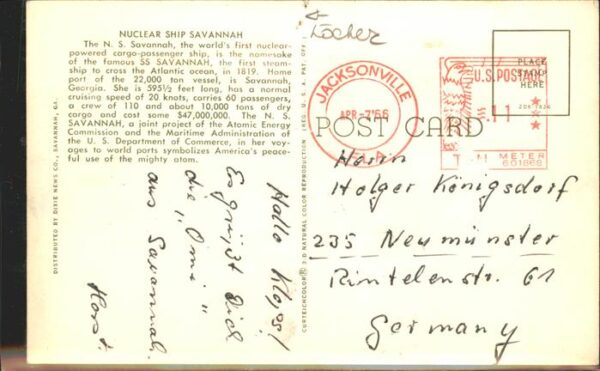 NUCLEAR SHIP SAVANNAH
The N. S. Savannah, the world's first nuclear-
powered cargo-passenger ship, is the namesake
of the famous SS SAVANNAH, the first steam-
ship to cross the Atlantic ocean, in 1819. Home
port of the 22,000 ton vessel, is Savannah,
Georgia. She is 595½ feet long, has a normal
cruising speed of 20 knots, carries 60 passengers,
a crew of 110 and about 10,000 tons of dry
cargo and cost some $47,000,000. The N. S.
SAVANNAH, a joint project of the Atomic Energy
Commission and the Maritime Administration of
the U. S. Department of Commerce, in her voy-
ages to world ports symbolizes America's peace-
ful use of the mighty atom.
DISTRIBUTED BY DIXIE NEWS CO., SAVANNAH, GA.
Hallo
Es grüßt Dich
die "Omi"
aus Savannah.
Horst.
CURTEICHCOLOR® 3-D NATURAL COLOR REPRODUCTION (REG. U. S. A. PAT. OFF.)
Locher
JACKSONVILLE
APR-7'66
FLA.
PLACE
STAMP
HERE
U.S. POSTAGE
11
METER
601868
POST CARD
Herrn
Holger Königsdorf
235 Neumünster
Rintelenstr. 61
Germany